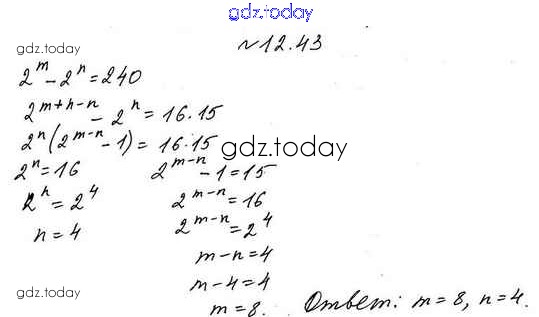 gdz.today
№12.43
gdz.today
2^m - 2^n = 240
2^{m+n-n} - 2^n = 16·15
2^n (2^{m-n} - 1) = 16·15
gdz.today
2^n = 16    2^{m-n} - 1 = 15
2^n = 2^4    2^{m-n} = 16
n = 4    2^{m-n} = 2^4
m - n = 4
m - 4 = 4
gdz.today
m = 8.    Ответ: m = 8, n = 4.